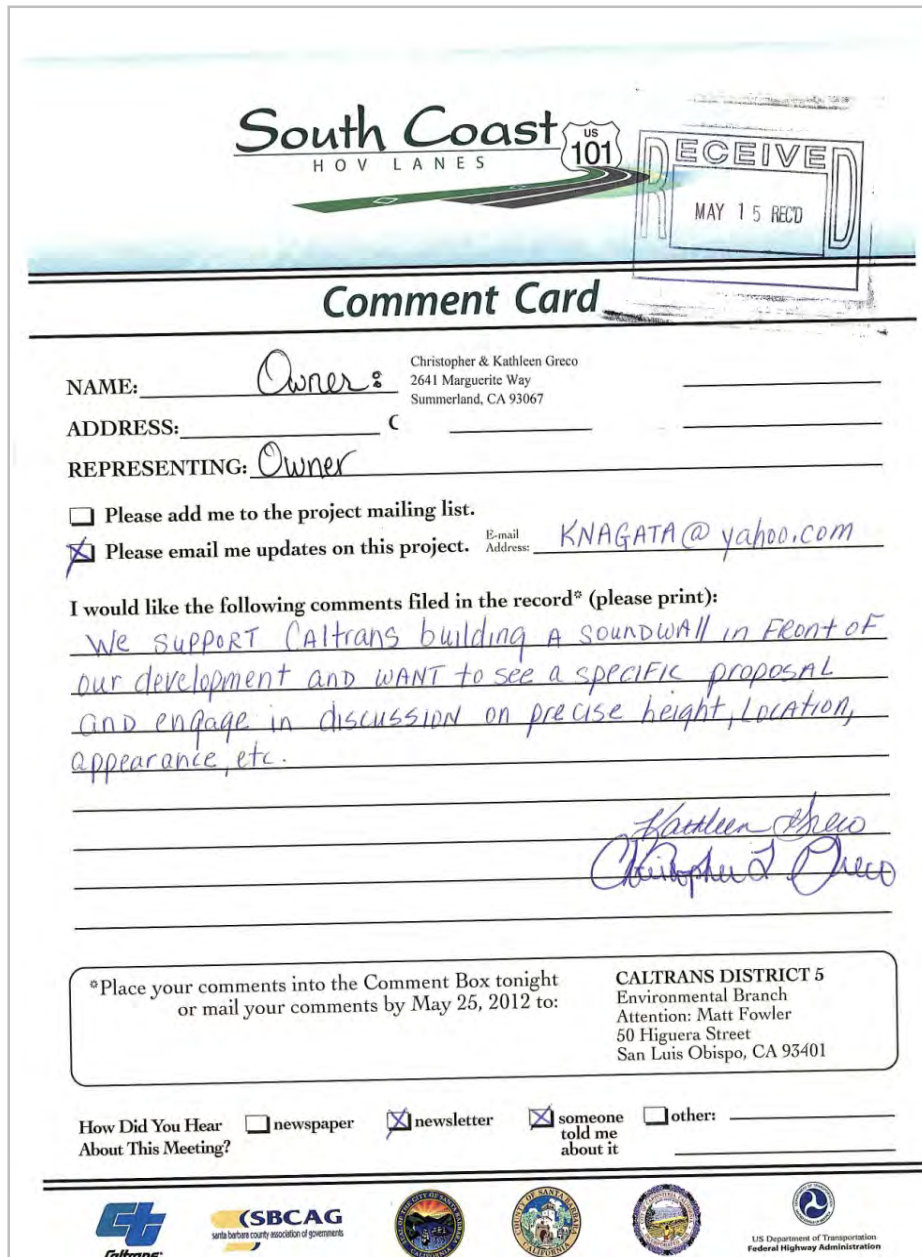 South Coast
HOV LANES
US
101
RECEIVED
MAY 15 REC'D
Comment Card
NAME: Owner:
Christopher & Kathleen Greco
2641 Marguerite Way
Summerland, CA 93067
ADDRESS: C
REPRESENTING: Owner
Please add me to the project mailing list.
Please email me updates on this project. E-mail Address: KNAGATA@yahoo.com
I would like the following comments filed in the record* (please print):
We SUPPORT CAltrans building A SOUNDWAll in FRont oF
our development AND WANT to see a specific proposal
AND engage in discussion on precise height, LOCATION,
appearance, etc.
Kathleen Greco
Christopher L Greco
*Place your comments into the Comment Box tonight
or mail your comments by May 25, 2012 to:
CALTRANS DISTRICT 5
Environmental Branch
Attention: Matt Fowler
50 Higuera Street
San Luis Obispo, CA 93401
How Did You Hear
About This Meeting?
newspaper
newsletter
someone
told me
about it
other:
Caltrans
SBCAG
santa barbara county association of governments
CALIFORNIA
US Department of Transportation
Federal Highway Administration